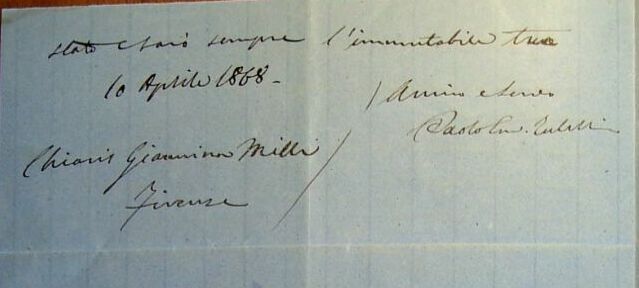 stato e sarò sempre l'immutabile tuo
10 Aprile 1868 -
Amico e Servo
Paolo Em.
Chiar.ma Giannina Milli
Firenze